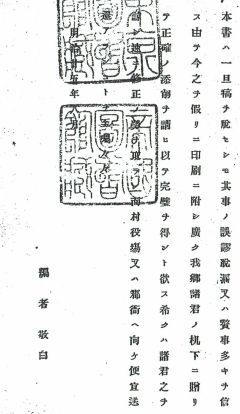 本書ハ一旦稿ヲ脱セシモ其事ノ誤謬脱漏又ハ贅事多キヲ信
ス由テ今之ヲ假リニ印刷ニ附シ廣ク我鄉諸君ノ机下ニ贈リ
テ正確ノ添削ヲ請ヒ以テ完璧ヲ得ント欲ス希クハ諸君之ヲ
諒シ速ニ修正ノ勞ヲ取ラレ而村役塲又ハ郡衙ヘ向ケ便宜送
還アランコトヲ
年
編者敬白